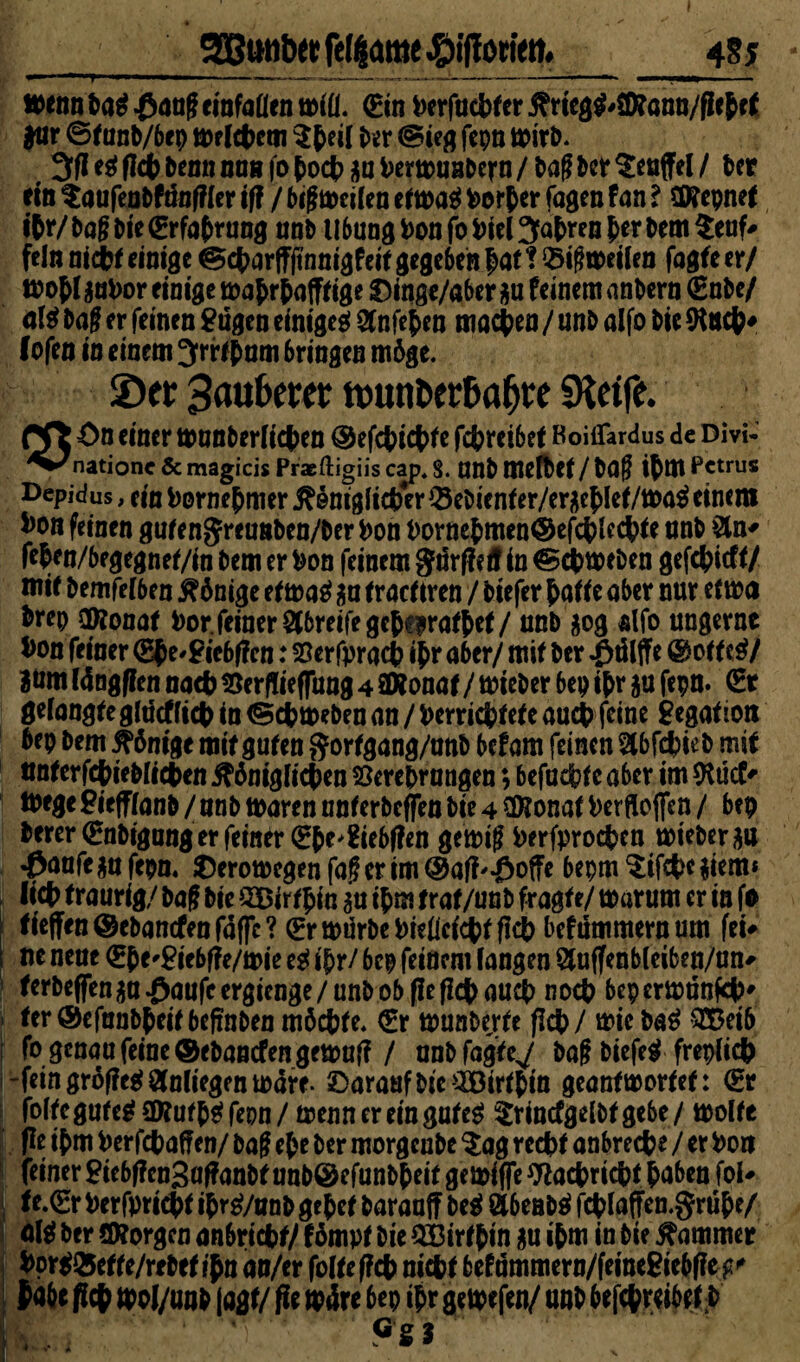 Wunder seltzame Historien. 485
wenn das Hauß einfallen will. Ein versuchter Kriegs-Mann/siehet
zur Stund/bey welchem Theil der Sieg seyn wird.
Ist es sich denn nun so hoch zu verwundern / daß der Teuffel / der
ein Tausendkünstler ist / bißweilen etwas vorher sagen kan? Meynet
ihr/daß die Erfahrung und Ubung von so viel Jahren her dem Teuf-
feln nicht einige Scharffsinnigkeit gegeben hat? Bißweilen sagte er/
wohl zuvor einige warhafftige Dinge/aber zu keinem andern Ende/
als daß er seinen Lügen einiges Ansehen machen/und also die Ruch-
losen in einem Irrthum bringen möge.
Der Zauberer wunderbahre Reise.
VOn einer wunderlichen Geschichte schreibet Boissardus de Divi-
natione & magicis Præstigiis cap. 8. und meldet / daß ihm Petrus
Depidus, ein vornehmer Königlicher Bedienter/erzehlet/was einem
von seinen guten Freunden/der von vornehmen Geschlechte und An-
sehen/begegnet/in dem er von seinem Fürsten in Schweden geschickt/
mit demselben Könige etwas zu tractiren / dieser hatte aber nur etwa
drey Monat vor seiner Abreise geheyrathet / und zog also ungerne
von seiner Ehe-Liebsten: Versprach ihr aber/ mit der Hülffe Gottes/
zum längsten nach Verfliessung 4 Monat / wieder bey ihr zu seyn. Er
gelangte glücklich in Schweden an / verrichtete auch seine Legation
bey dem Könige mit guten Fortgang/und bekam seinen Abschied mit
unterschiedlichen Königlichen Verehrungen; besuchte aber im Rück-
wege Lieffland / und waren unterdessen die 4 Monat verflossen / bey
derer Endigung er seiner Ehe-Liebsten gewiß versprochen wieder zu
Hause zu seyn. Derowegen saß er im Gast-Hoffe beym Tische ziem-
lich traurig/ daß die Wirthin zu ihm trat/und fragte/ warum er in so
tieffen Gedancken sässe? Er würde vielleicht sich bekümmern um sei-
ne neue Ehe-Liebste/wie es ihr/ bey seinem langen Aussenbleiben/un-
terdessen zu Hause ergienge / und ob sie sich auch noch bey erwünsch-
ter Gesundheit befinden möchte. Er wunderte sich / wie das Weib
so genau seine Gedancken gewust / und sagte/ daß dieses freylich
sein gröstes Anliegen wäre. Darauf die Wirthin geantwortet: Er
solte gutes Muths seyn / wenn er ein gutes Trinckgeldt gebe / wolte
sie ihm verschaffen/ daß ehe der morgende Tag recht anbreche / er von
seiner Liebsten Zustandt und Gesundheit gewisse Nachricht haben sol-
te. Er verspricht ihrs/und gehet darauff des Abends schlaffen. Frühe/
als der Morgen anbricht/ kömpt die Wirthin zu ihm in die Kammer
vors Bette/redet ihn an/er solte sich nicht bekümmern/seine Liebste
habe sich wol/und sagt/ sie wäre bey ihr gewesen/ und beschreibet
Gg 3